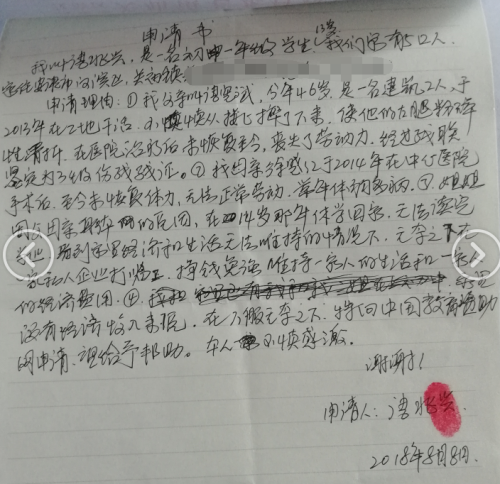 申请书
我叫谭将兴，是一名初一年级学生，13岁我们家有5口人，
申请理由：①我父亲叫谭宽试，今年46岁，是一名建筑工人，于
2013年在工地干活，小慎从楼上摔了下来，使他的左腿粉碎
性骨折，在医院治疗后未恢复至今，丧失了劳动力，经过残联
鉴定为3级伤残残证。②我母亲徐感红于2014年在中心医院
手术后，至今未恢复体力，无法正常劳动，常年体弱多病，③姐姐
因为因家的原因，在14岁那年休学回家，无法读完
看到家里经济和生活无法维持的情况下，无奈之下在
私人企业打工，挣钱勉强维持一家人的生活和一家人
的经济费用。④
没有经济收入来源，在万般无奈之下，特向中国教育资助
网申请，望给予帮助。本人不慎感激。
谢谢！
申请人：谭将兴
2018年8月8日